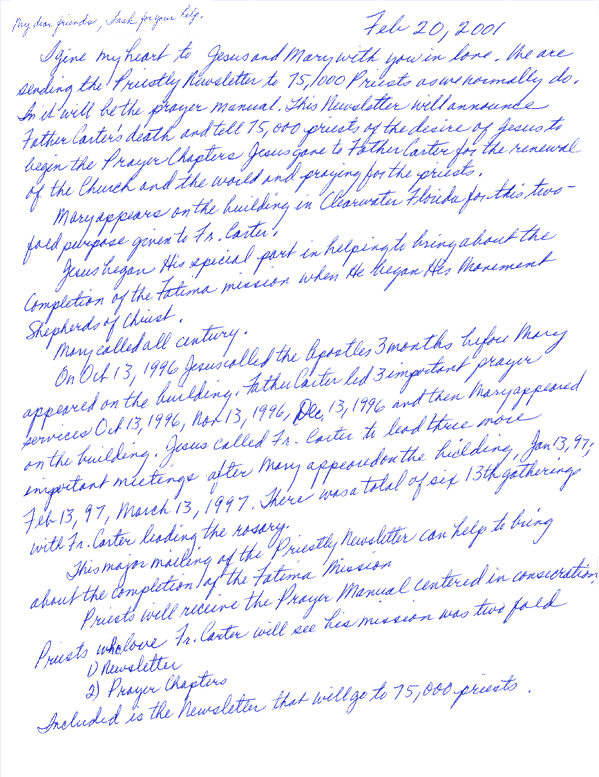 My dear friends, I ask for your help.
Feb 20, 2001
I give my heart to Jesus and Mary with you in love. We are
sending the Priestly Newsletter to 75,000 Priests as we normally do.
In it will be the prayer manual. This Newsletter will announce
Father Carter's death and tell 75,000 priests of the desire of Jesus to
begin the Prayer Chapters Jesus gave to Father Carter for the renewal
of the Church and the world and praying for the priests.
Mary appears on the building in Clearwater Florida for this two-
fold purpose given to Fr. Carter.
Jesus began His special part in helping to bring about the
Completion of the Fatima mission when He began His Movement
Shepherds of Christ.
Mary called all century.
On Oct 13, 1996 Jesus called the Apostles 3 months before Mary
appeared on the building. Father Carter led 3 important prayer
services Oct 13, 1996, Nov 13, 1996, Dec. 13, 1996 and then Mary appeared
on the building. Jesus called Fr. Carter to lead three more
important meetings after Mary appeared on the building, Jan 13, 97,
Feb 13, 97, March 13, 1997. There was a total of six 13th gatherings
with Fr. Carter leading the rosary.
This major mailing of the Priestly Newsletter can help to bring
about the completion of the Fatima Mission
Priests will receive the Prayer Manual centered in consecration,
Priests who love Fr. Carter will see his mission was two fold
1) Newsletter
2) Prayer Chapters
Included is the Newsletter that will go to 75,000 priests.